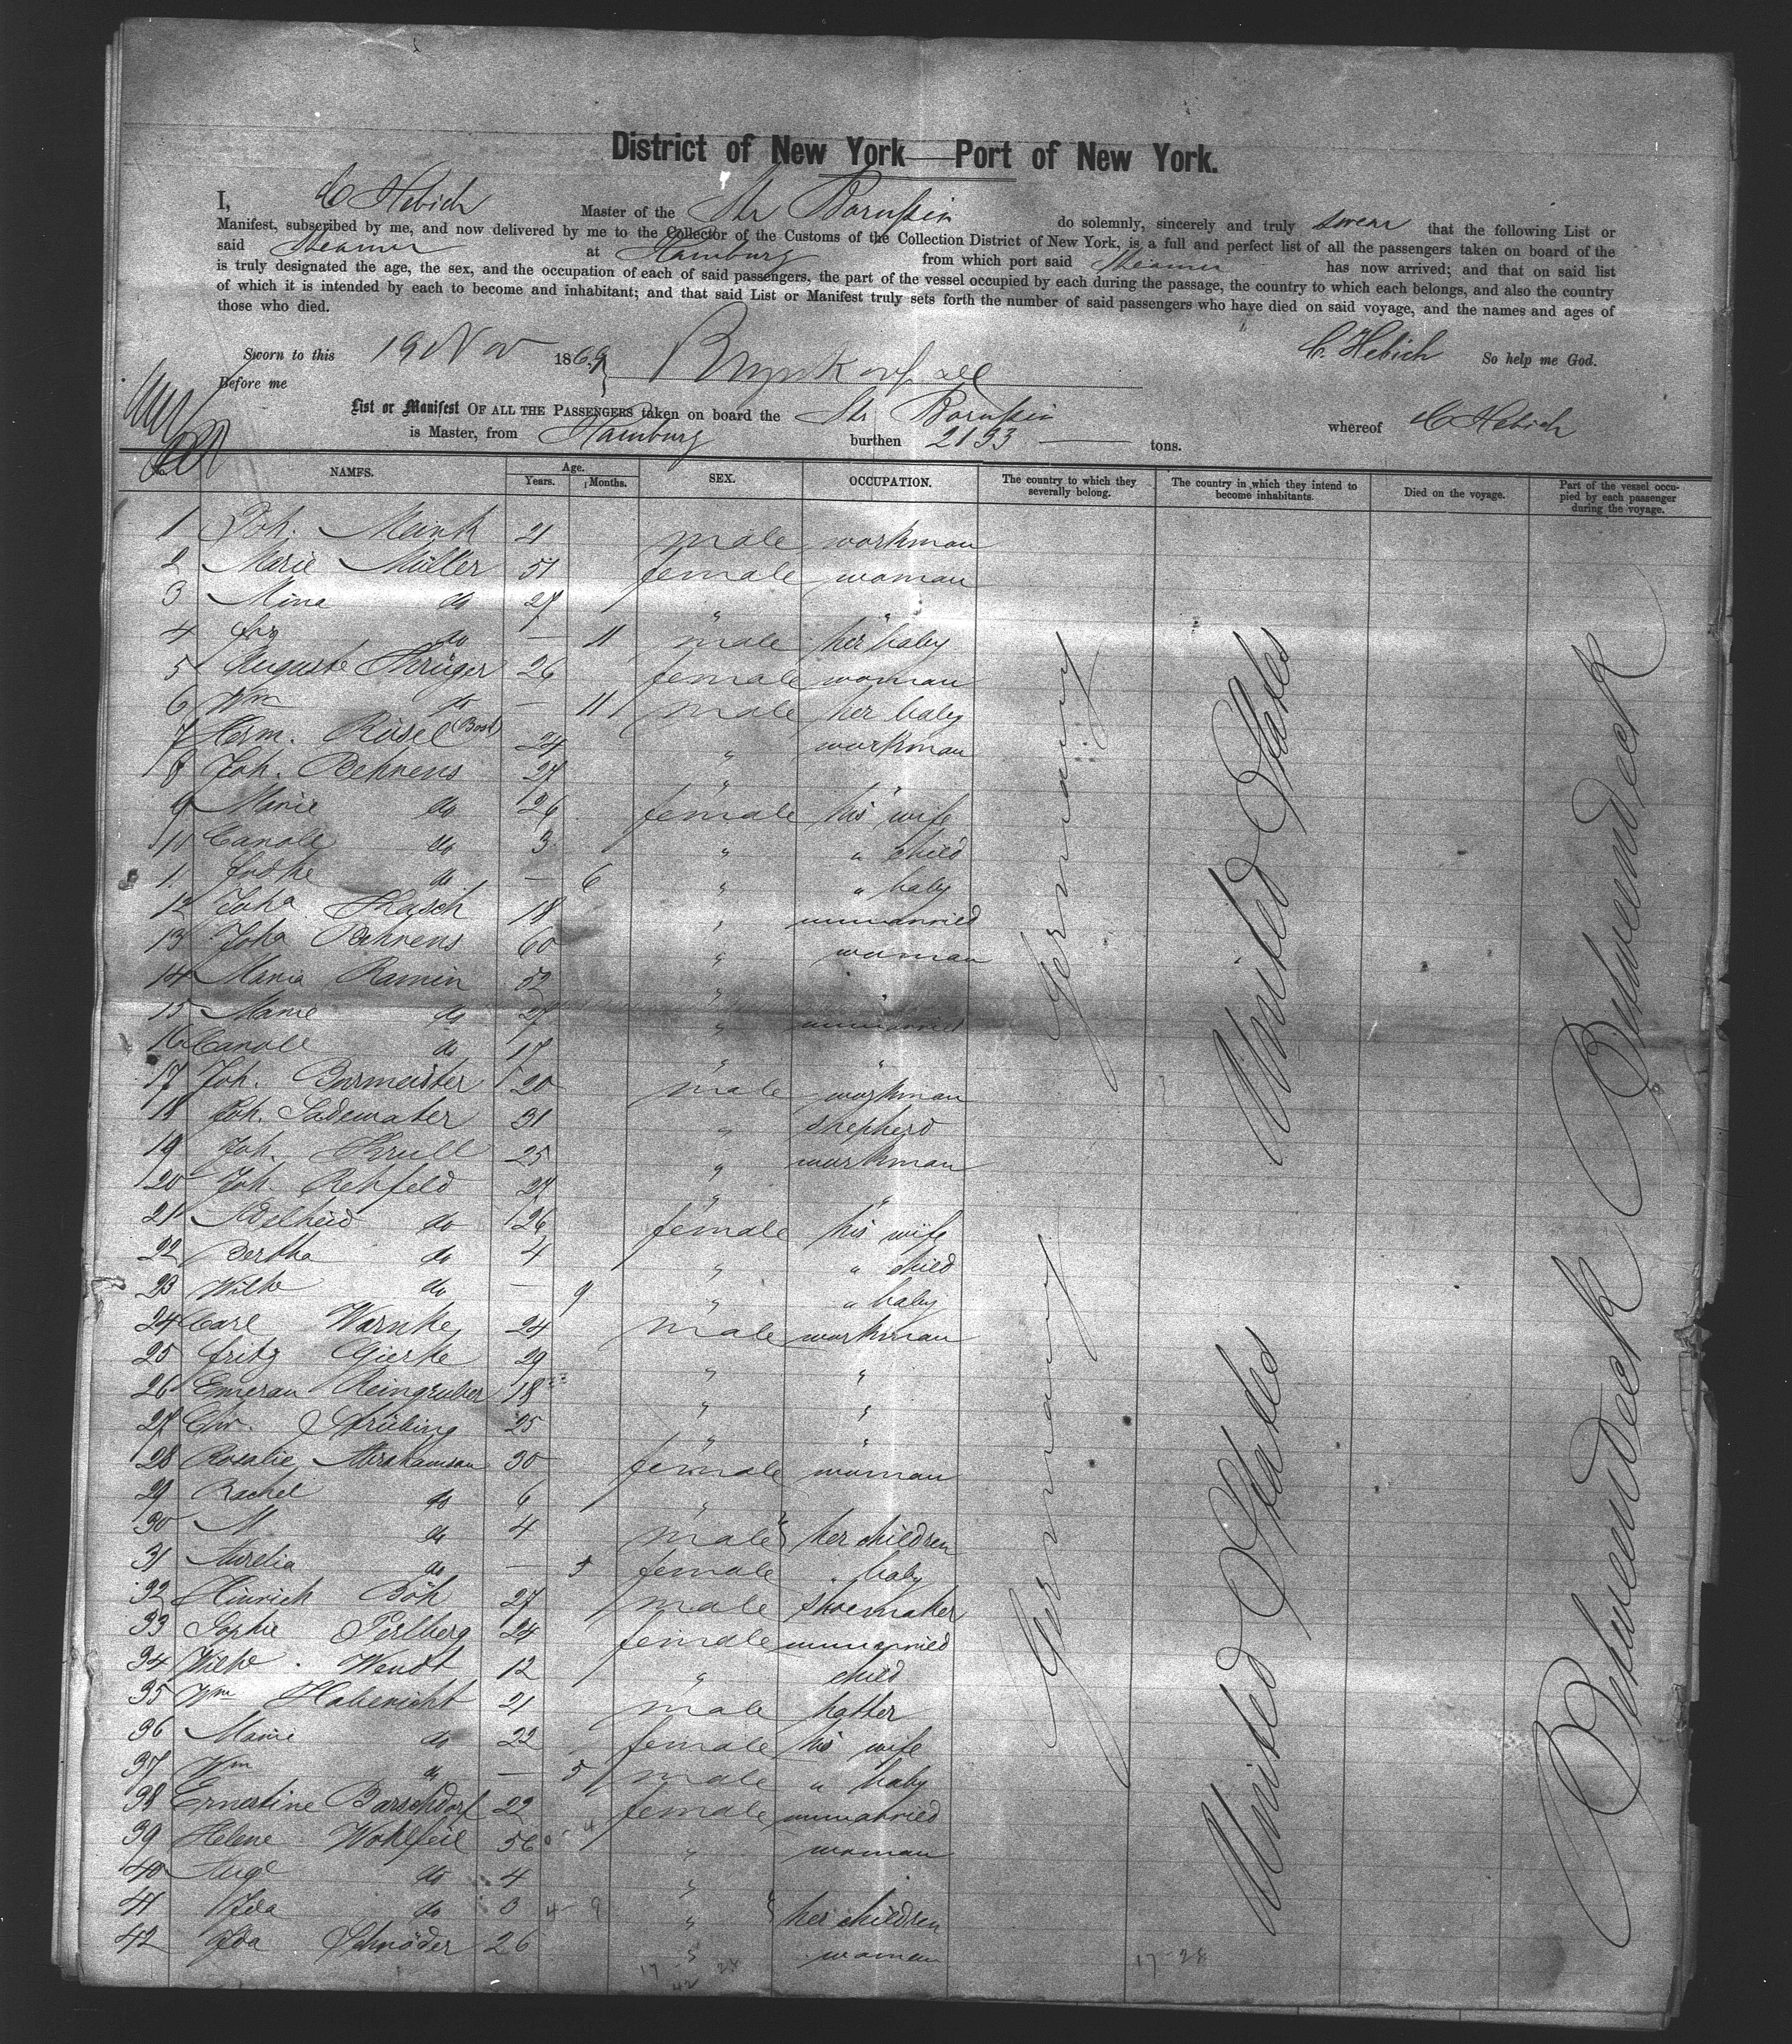 District of New York — Port of New York.
I, C Hebich Master of the Str Borussia do solemnly, sincerely and truly swear that the following List or
Manifest, subscribed by me, and now delivered by me to the Collector of the Customs of the Collection District of New York, is a full and perfect list of all the passengers taken on board of the
said Steamer at Hamburg from which port said Steamer has now arrived; and that on said list
is truly designated the age, the sex, and the occupation of each of said passengers, the part of the vessel occupied by each during the passage, the country to which each belongs, and also the country
of which it is intended by each to become and inhabitant; and that said List or Manifest truly sets forth the number of said passengers who have died on said voyage, and the names and ages of
those who died.
Sworn to this 19 Nov 1869 C. Hebich So help me God.
Before me
List or Manifest OF ALL THE PASSENGERS taken on board the Str Borussia whereof C Hebich
is Master, from Hamburg burthen 2133 tons.
No. NAMES. Age. Years. Months. SEX. OCCUPATION. The country to which they severally belong. The country in which they intend to become inhabitants. Died on the voyage. Part of the vessel occupied by each passenger during the voyage.
1 Joh. Mank 21 male workman
2 Marie Müller 51 female woman
3 Mina do 27 " "
4 do — 11 male her baby
5 Auguste Krüger 26 female woman
6 Wm do — 11 male her baby
7 Herm. Rüsel 24 " workman
8 Joh. Behrens 27 " "
9 Marie do 26 female his wife
10 Carole do 3 " " child
11 do — 6 " " baby
12 Joha Hasch 18 " unmarried
13 Joha Behrens 60 " woman
14 Maria Ramin 52 " "
15 Marie do 27 " unmarried
16 Carole do 17 " "
17 Joh. Burmeister 20 male workman
18 Joh. Sadewater 31 " shepherd
19 Joh. Krull 25 " workman
20 Joh. Rehfeld 27 " "
21 Adelheid do 26 female his wife
22 Bertha do 4 " " child
23 Wilhe do — 9 " " baby
24 Carl Warnke 24 male workman
25 Fritz Gierke 29 " "
26 Emeran Reingruber 18 " "
27 Chr. Strübing 25 " "
28 Rosalie Abrahamson 30 female woman
29 Rachel do 6 "
30 M do 4 male " her children
31 Aurelia do — 5 female " baby
32 Hinrich Böh 27 male shoemaker
33 Sophie Pirlberg 24 female unmarried
34 Wilhe Wendt 12 " child
35 Wm Habenicht 21 male hatter
36 Marie do 22 female his wife
37 Wm do — 5 male " baby
38 Ernestine Barschdorf 22 female unmarried
39 Helene Wohlfeil 56 " woman
40 Auge do 4 "
41 Ida do 0 4 - 9 " " her children
42 Ida Schröder 26 " woman
Germany
Germany
United States
United States
Betweendeck
Betweendeck
17 - 28
42
17-28